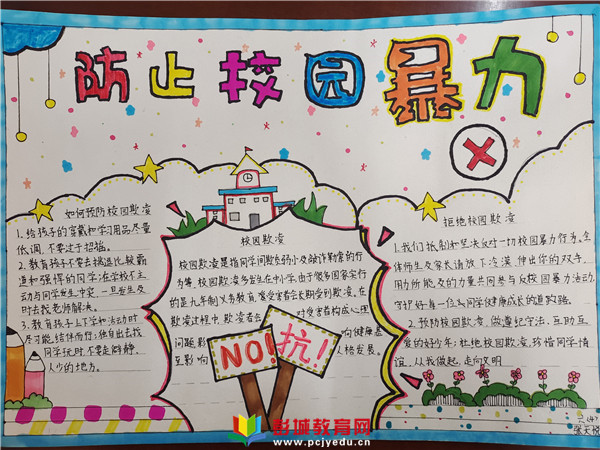 防止校园暴力
如何预防校园欺凌
1. 给孩子的穿戴和学习用品尽量
低调,不要过于招摇。
2. 教育孩子不要去挑逗比较霸
道和强悍的同学;在学校不主
动与同学发生冲突,一旦发生及
时去找老师解决。
3. 教育孩子上下学和活动时
尽可能结伴而行;独自出去找
同学玩时不要走僻静、
人少的地方。
校园欺凌
校园欺凌是指同学间欺负弱小及被诈勒索的行
为等,校园欺凌多发生在中小学,由于很多国家实行
的是九年制义务教育,常受害者会长期受到欺凌。在
欺凌过程中,欺凌者会 对受害者构成心理
问题,影 响健康甚
至影响 人格发展。
NO!
抗!
拒绝校园欺凌
1. 我们抵制和坚决反对一切校园暴力行为,全
体师生及家长请放下冷漠,伸出你的双手,
用力所能及的力量共同参与反校园暴力活动,
守护好每一位同学健康成长的道路。
2. 预防校园欺凌,做遵纪守法、互助互
爱的好少年;杜绝校园欺凌,珍惜同学情
谊,从我做起,走向文明
彭城教育网
www.pcjyedu.cn